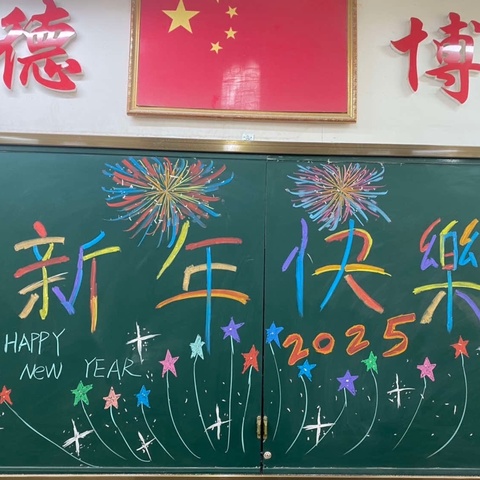 德 博
新年快樂
HAPPY
NEW YEAR
2025